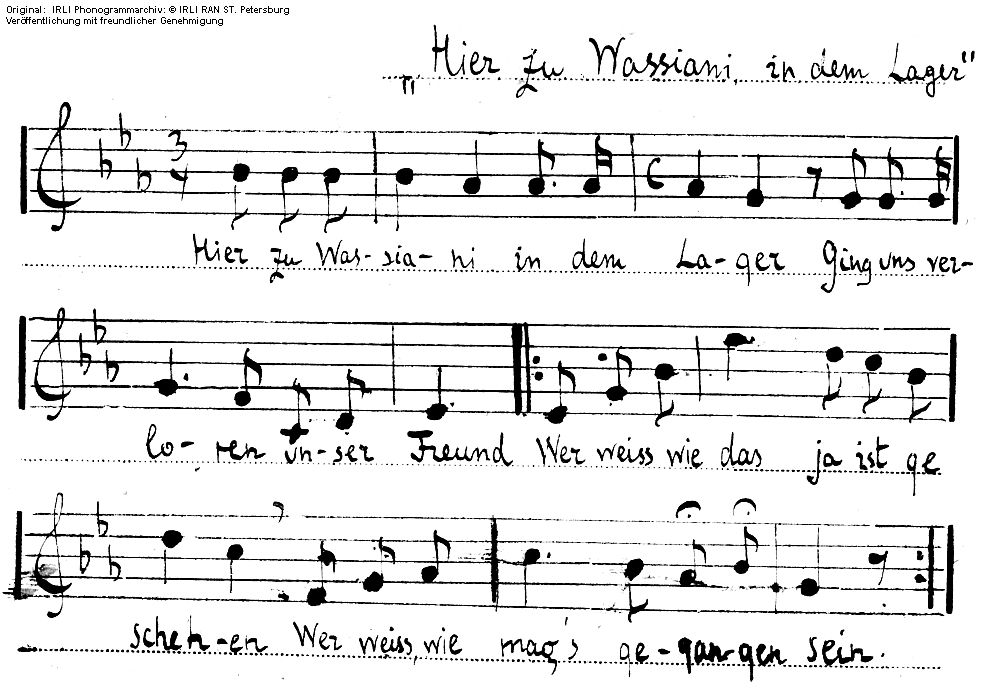 Original: IRLI Phonogrammarchiv: © IRLI RAN ST. Petersburg
Veröffentlichung mit freundlicher Genehmigung
„Hier zu Wassiani in dem Lager"
3
4
C
Hier zu Was-sia-ni in dem La-ger Ging uns ver-
lo-ren un-ser Freund Wer weiss wie das ja ist ge
scheh-en Wer weiss wie mag's ge-gan-gen sein.